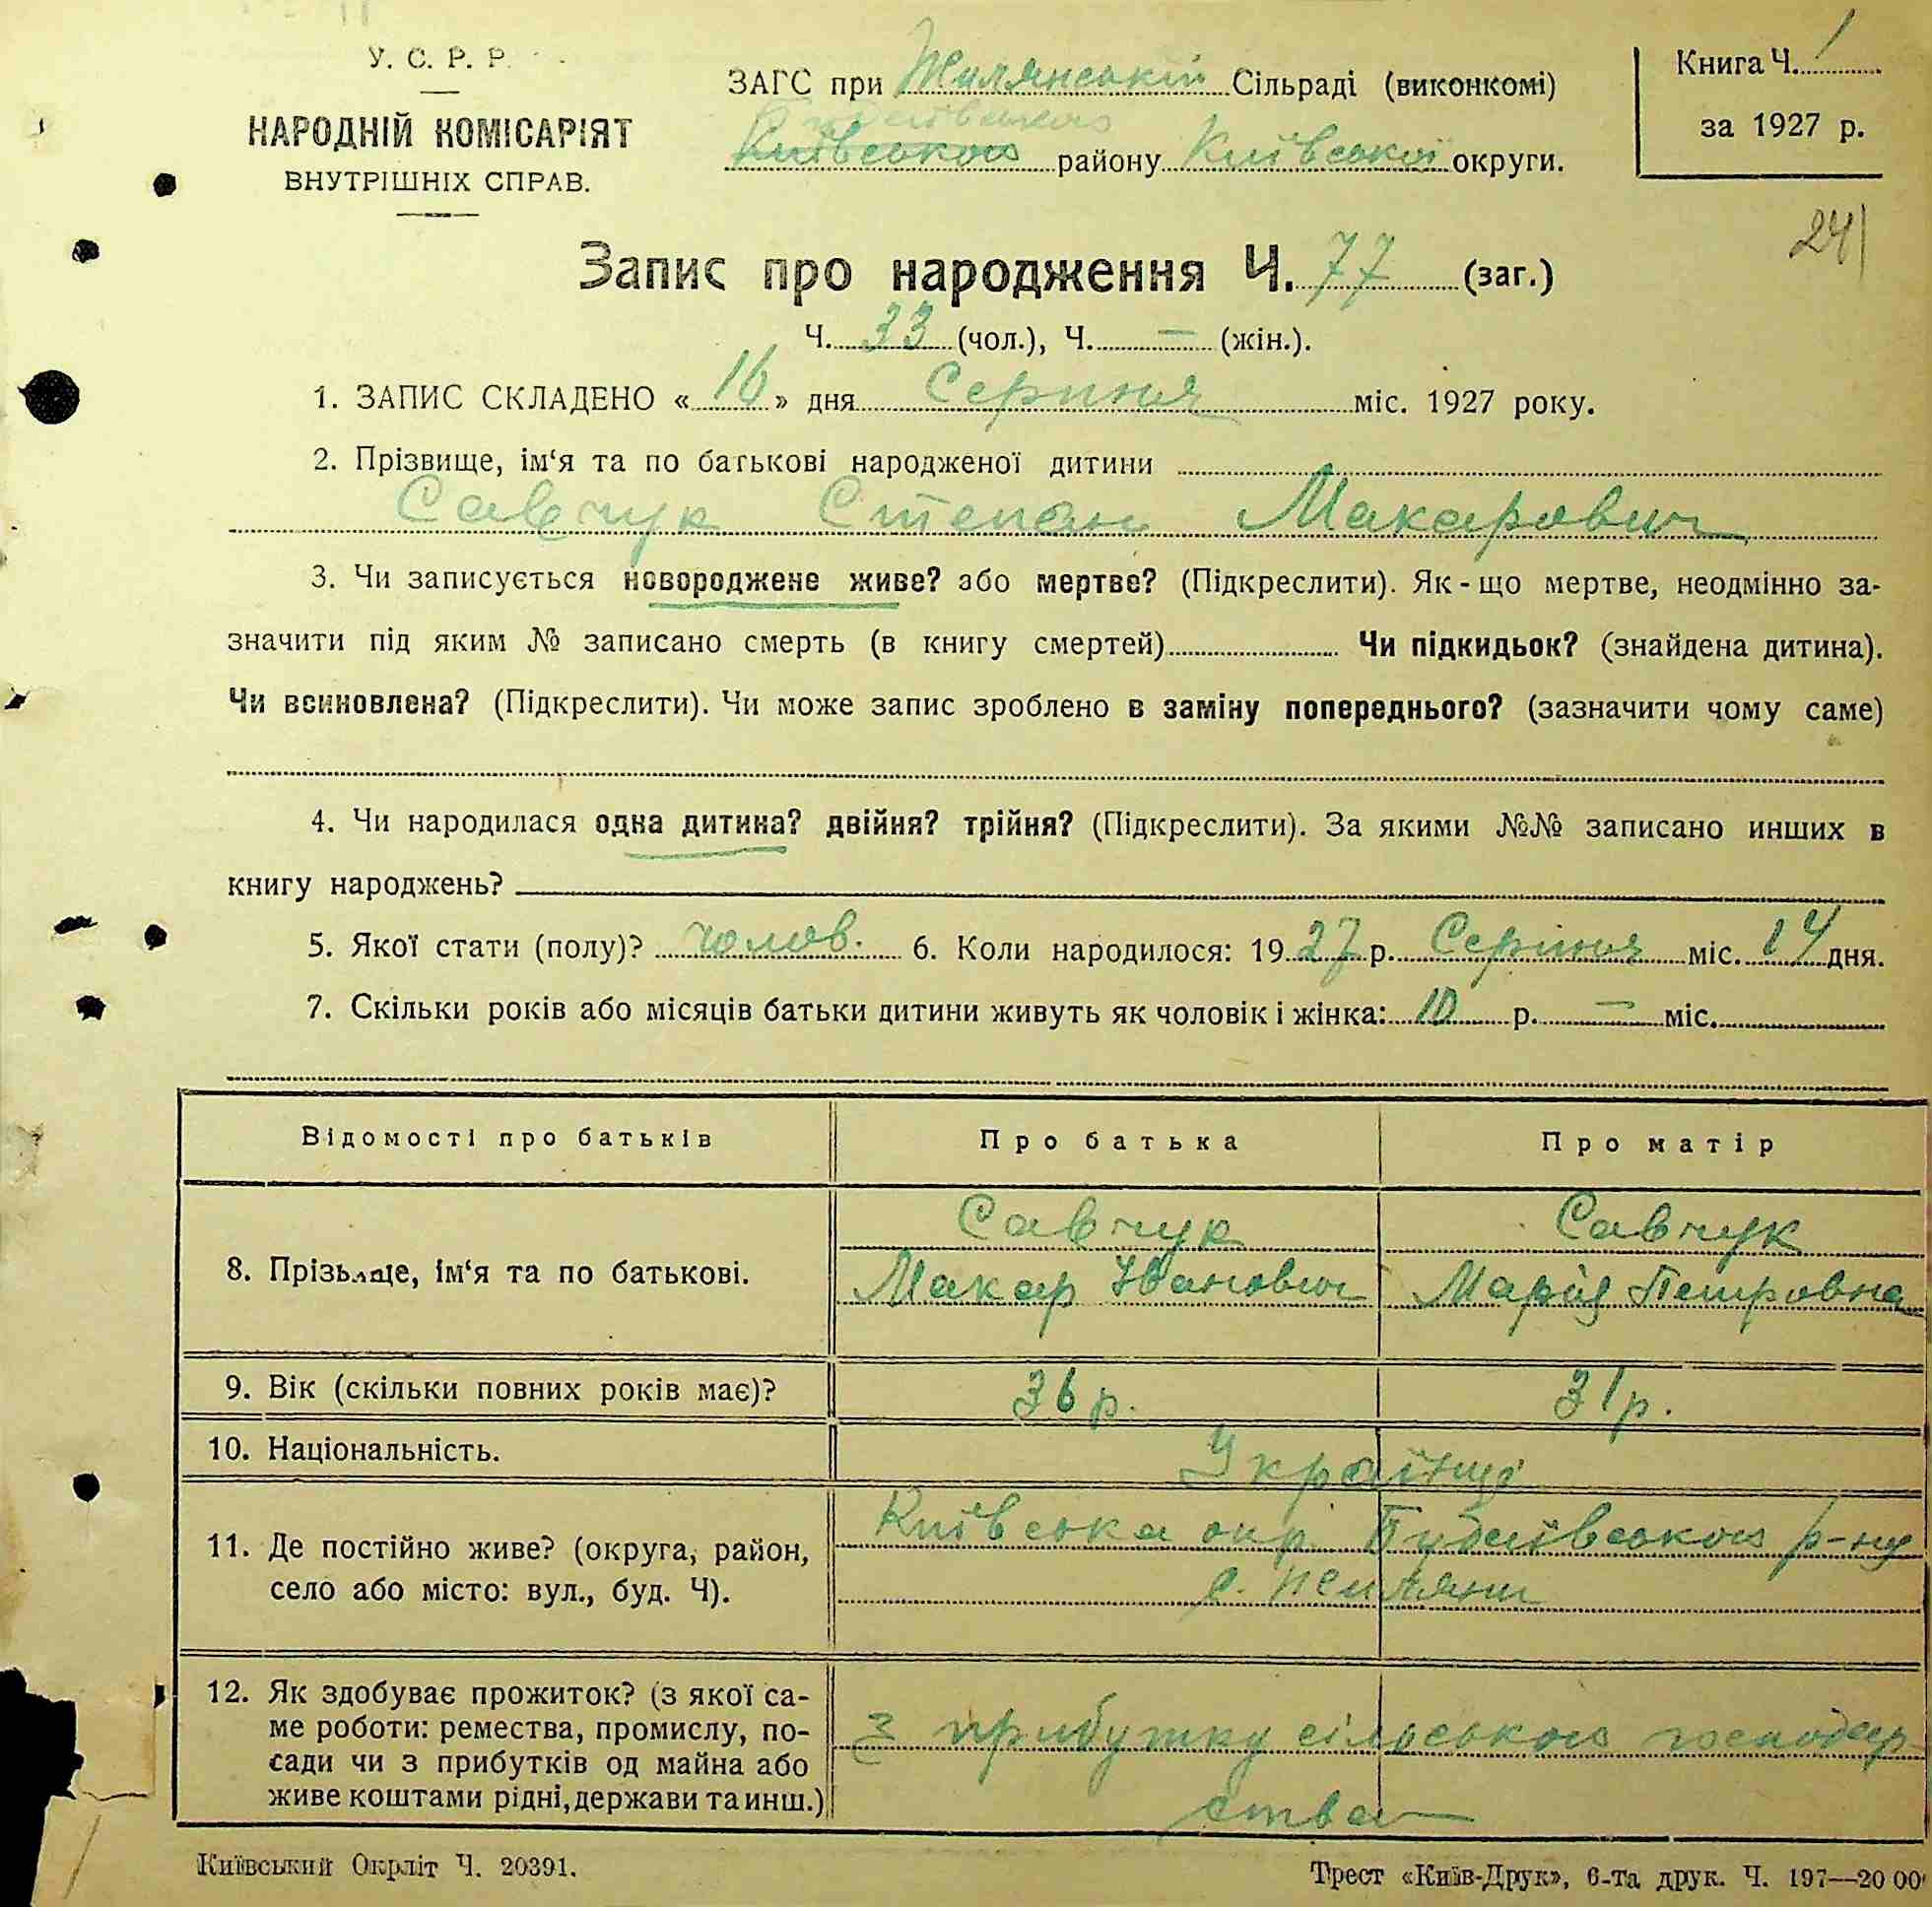 У. С. Р. Р.
НАРОДНІЙ КОМІСАРІЯТ
ВНУТРІШНІХ СПРАВ.
ЗАГС при Жилянській Сільраді (виконкомі)
Будаївського
Київського району Київської округи.
Книга Ч. 1
за 1927 р.
241
Запис про народження Ч. 77 (заг.)
Ч. 33 (чол.), Ч. — (жін.).
1. ЗАПИС СКЛАДЕНО « 16 » дня Серпня міс. 1927 року.
2. Прізвище, ім‘я та по батькові народженої дитини
Савчук Степан Макарович
3. Чи записується новороджене живе? або мертве? (Підкреслити). Як-що мертве, неодмінно за-
значити під яким № записано смерть (в книгу смертей) Чи підкидьок? (знайдена дитина).
Чи всиновлена? (Підкреслити). Чи може запис зроблено в заміну попереднього? (зазначити чому саме)
4. Чи народилася одна дитина? двійня? трійня? (Підкреслити). За якими №№ записано инших в
книгу народжень?
5. Якої стати (полу)? чолов. 6. Коли народилося: 1927 р. Серпня міс. 14 дня.
7. Скільки років або місяців батьки дитини живуть як чоловік і жінка: 10 р. — міс.
Відомості про батьків Про батька Про матір
8. Прізвище, ім‘я та по батькові.
Савчук Савчук
Макар Іванович Марія Петровна
9. Вік (скільки повних років має)? 36 р. 31 р.
10. Національність. Українці
11. Де постійно живе? (округа, район,
село або місто: вул., буд. Ч).
Київська окр. Будаївського р-ну
с. Жиляни
12. Як здобуває прожиток? (з якої са-
ме роботи: ремества, промислу, по-
сади чи з прибутків од майна або
живе коштами рідні, держави та инш.)
З прибутку сільського господар-
ства
Київський Окрліт Ч. 20391.
Трест «Київ-Друк», 6-та друк. Ч. 197—20 00